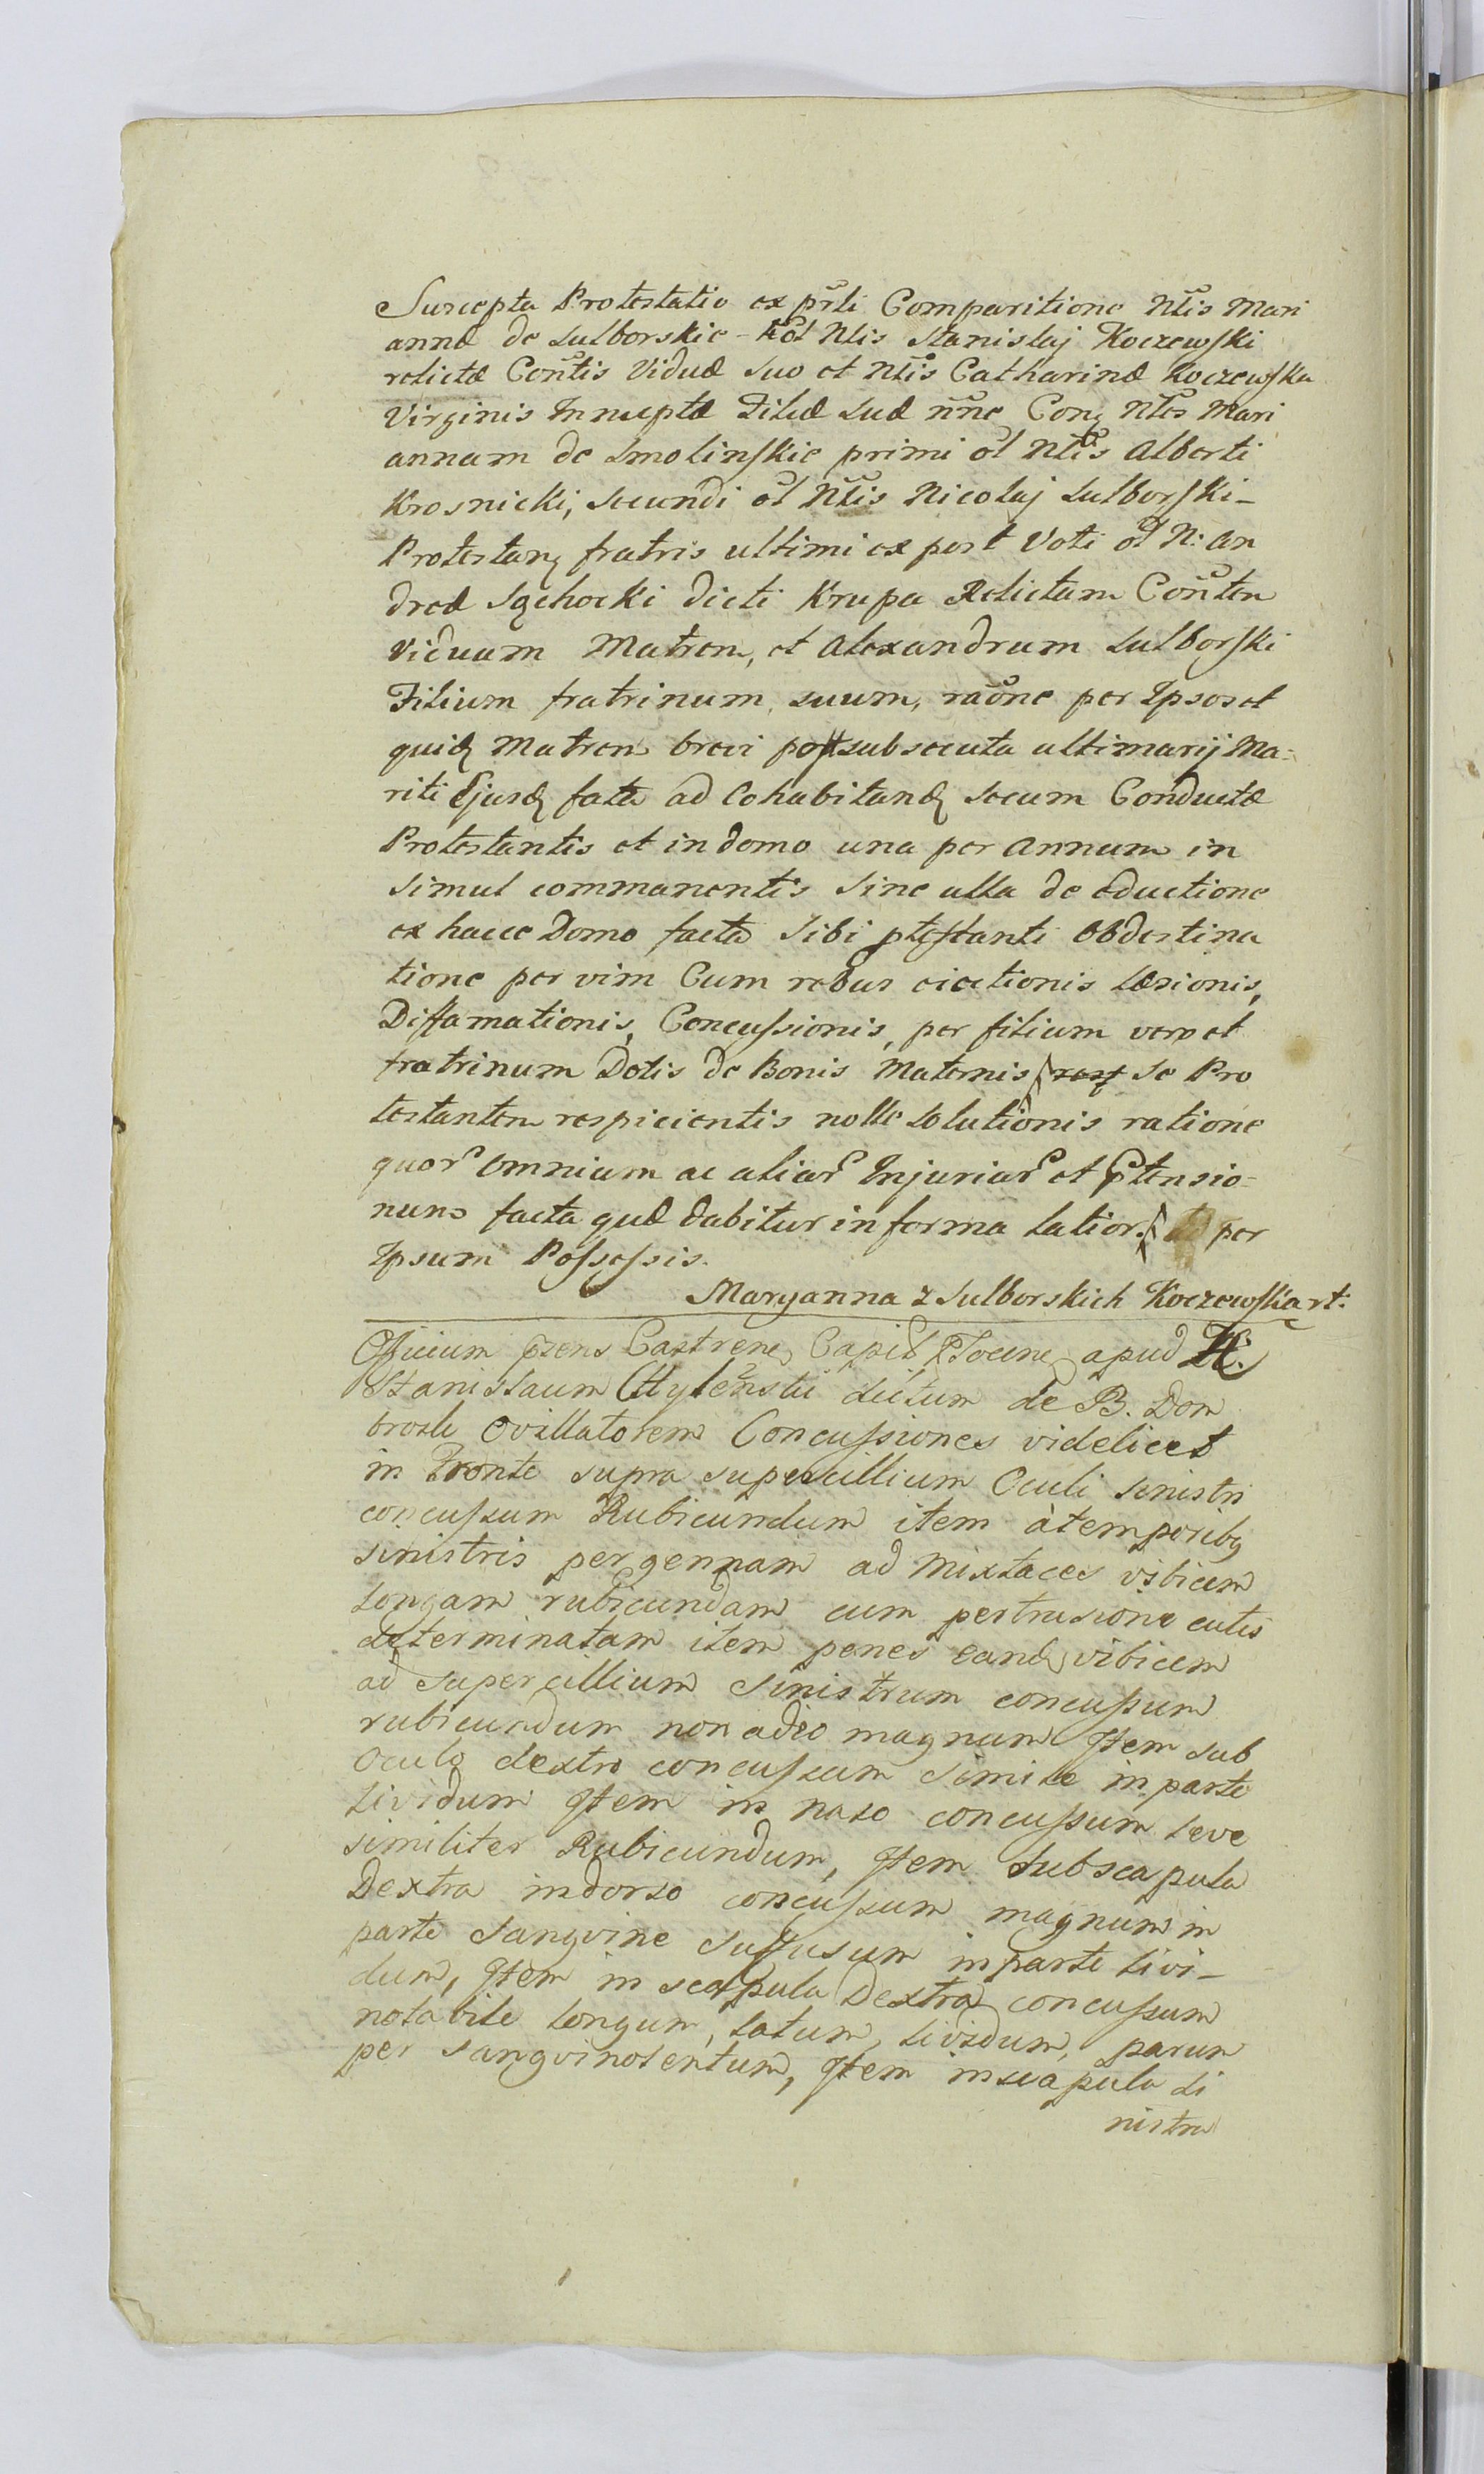 Suscepta Protestatio ex pr̃li Comparitione Nt̃is Mari
annæ de Sulborskie - Nlis Stanislaj Koczewski
relictæ Con̄tis Viduæ Suo et Nt̃is Catharinæ Koczewska
Virginis Innuptæ Filiæ Suæ nñe Conȝ Nt̃es Mari
annam de Smolinskie primi ol Nt̃is Alberti
Krosnicki, Secundi ol Nt̃is Nicolaj Sulborski-
Protestanȝ fratris ultimi ex post Voti ol N: An
dreæ Sąchocki dicti Krupa Relictam Con̄ten
Viduam Matrem, et Alexandrum Sulborski
Filium fratrinum, suum, raõne per Ipsos et
quidȝ Matrem brevi post subsecuta ultimarij Ma-
riti Ejusdȝ fata ad Cohabitandȝ Secum Conductæ
Protestantis et in domo una per Annum in
simul commanentis sine ulla de eductione
ex hacce Domo facta Sibi ptestanti Obdestina
tione per vim Cum rebus eiectionis læsionis,
Diffamationis, Concussionis, per filium vero et
fratrinum Dotis de Bonis Maternis se Pro
testantem respicientis nolle Solutionis ratione
quor Omnium ac aliar Injuriar et Ptensio-
num facta quæ dabitur in forma latior. per
Ipsum Possessis.
Maryanna z Sulborskich Koczewska rt:
Officium pzens Castrene Capit Socine apud H.
Stanislaum dictum de B. Dom
broshi Ovillatorem Concussiones videlicet
in Fronte supra supercillium Oculi sinistri
concussum Rubicundum item à temporibȝ
sinistris per gennam ad Mixtaces vibicem
longam rubicundam cum pertrusione cutis
determinatam item penes eandȝ vibicem
ad supercillium Sinistrum concussum
rubicundum non adeo magnum Item sub
Oculo dextro concussum simile in parte
lividum Item in naso concussum leve
similiter Rubicundum, Item Sub scapula
Dextra in dorso concussum magnum in
parte sangvine suffusum in parte livi-
dum, Item in scapula Dextra concussum
notabile longum, latum, lividum, parum
per sangvinolentum, Item in scapula Si
nistra